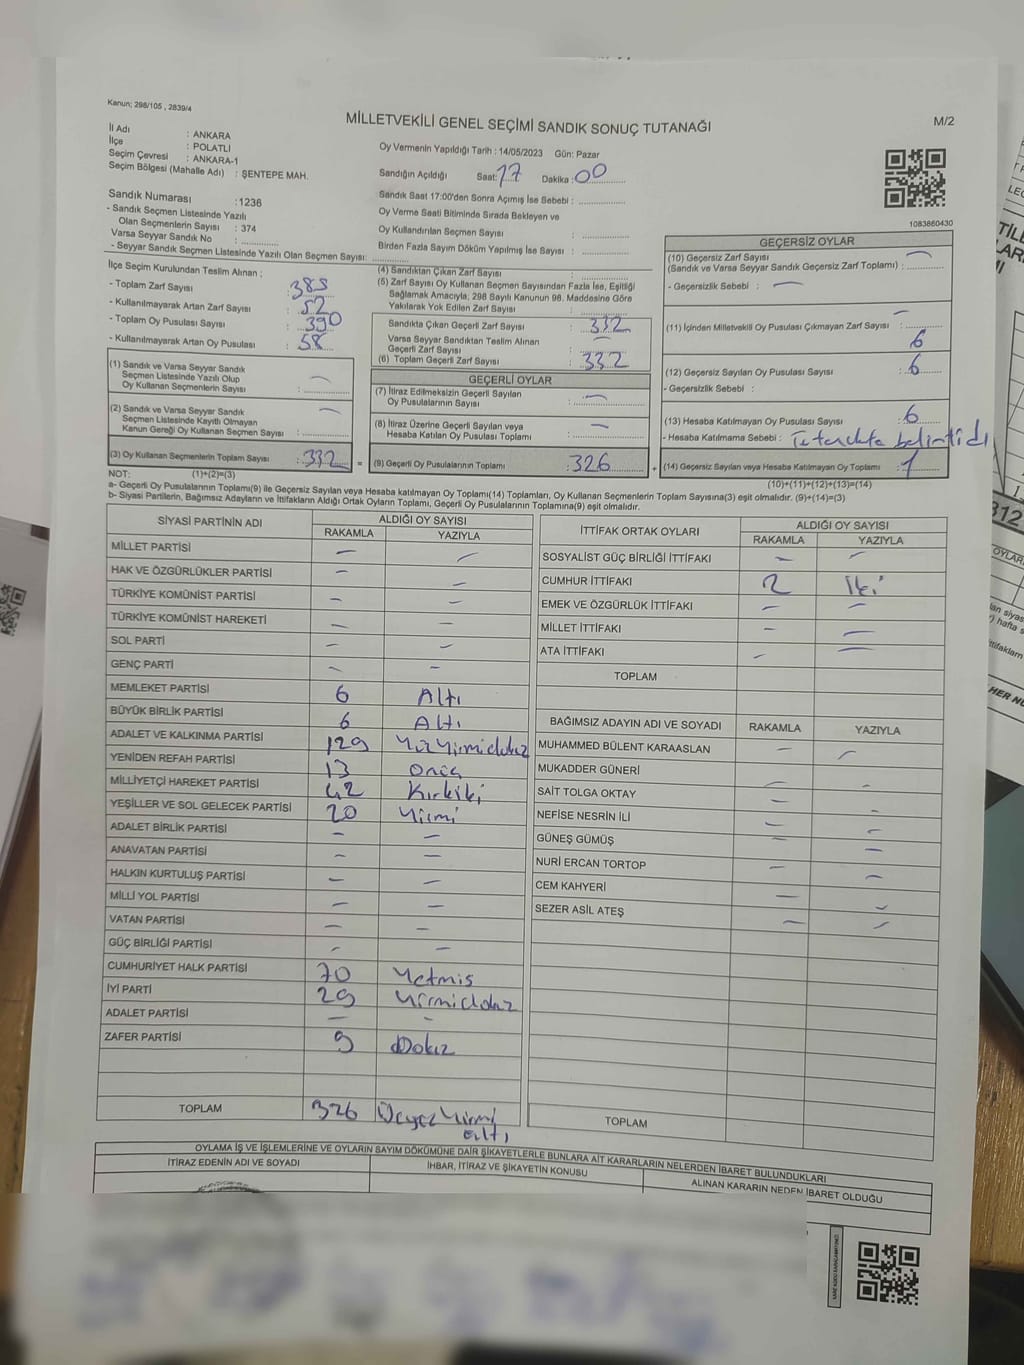 Kanun; 298/105 , 2839/4
MİLLETVEKİLİ GENEL SEÇİMİ SANDIK SONUÇ TUTANAĞI
M/2
İl Adı : ANKARA
İlçe : POLATLI
Seçim Çevresi : ANKARA-1
Seçim Bölgesi (Mahalle Adı) : ŞENTEPE MAH.
Oy Vermenin Yapıldığı Tarih : 14/05/2023 Gün: Pazar
Sandığın Açıldığı Saat: 17 Dakika : 00
Sandık Saat 17:00'den Sonra Açımış İse Sebebi :
Oy Verme Saati Bitiminde Sırada Bekleyen ve
Oy Kullandırılan Seçmen Sayısı :
Birden Fazla Sayım Döküm Yapılmış İse Sayısı :
1083860430
Sandık Numarası : 1236
- Sandık Seçmen Listesinde Yazılı
Olan Seçmenlerin Sayısı : 374
Varsa Seyyar Sandık No :
- Seyyar Sandık Seçmen Listesinde Yazılı Olan Seçmen Sayısı:
İlçe Seçim Kurulundan Teslim Alınan ;
- Toplam Zarf Sayısı : 385
- Kullanılmayarak Artan Zarf Sayısı : 52
- Toplam Oy Pusulası Sayısı : 390
- Kullanılmayarak Artan Oy Pusulası : 58
(1) Sandık ve Varsa Seyyar Sandık
Seçmen Listesinde Yazılı Olup
Oy Kullanan Seçmenlerin Sayısı : —
(2) Sandık ve Varsa Seyyar Sandık
Seçmen Listesinde Kayıtlı Olmayan
Kanun Gereği Oy Kullanan Seçmen Sayısı : —
(3) Oy Kullanan Seçmenlerin Toplam Sayısı : 332 =
(4) Sandıktan Çıkan Zarf Sayısı :
(5) Zarf Sayısı Oy Kullanan Seçmen Sayısından Fazla İse, Eşitliği
Sağlamak Amacıyla; 298 Sayılı Kanunun 98. Maddesine Göre
Yakılarak Yok Edilen Zarf Sayısı :
Sandıkta Çıkan Geçerli Zarf Sayısı : 332
Varsa Seyyar Sandıktan Teslim Alınan
Geçerli Zarf Sayısı : —
(6) Toplam Geçerli Zarf Sayısı : 332
GEÇERLİ OYLAR
(7) İtiraz Edilmeksizin Geçerli Sayılan
Oy Pusulalarının Sayısı : —
(8) İtiraz Üzerine Geçerli Sayılan veya
Hesaba Katılan Oy Pusulası Toplamı : —
(9) Geçerli Oy Pusulalarının Toplamı : 326 +
GEÇERSİZ OYLAR
(10) Geçersiz Zarf Sayısı —
(Sandık ve Varsa Seyyar Sandık Geçersiz Zarf Toplamı) :
- Geçersizlik Sebebi : —
(11) İçinden Milletvekili Oy Pusulası Çıkmayan Zarf Sayısı : —
6
(12) Geçersiz Sayılan Oy Pusulası Sayısı : 6
- Geçersizlik Sebebi :
(13) Hesaba Katılmayan Oy Pusulası Sayısı : 6
- Hesaba Katılmama Sebebi : belirtildi
(14) Geçersiz Sayılan veya Hesaba Katılmayan Oy Toplamı : 1
(10)+(11)+(12)+(13)=(14)
NOT: (1)+(2)=(3)
a- Geçerli Oy Pusulalarının Toplamı(9) ile Geçersiz Sayılan veya Hesaba katılmayan Oy Toplamı(14) Toplamları, Oy Kullanan Seçmenlerin Toplam Sayısına(3) eşit olmalıdır. (9)+(14)=(3)
b- Siyasi Partilerin, Bağımsız Adayların ve İttifakların Aldığı Ortak Oyların Toplamı, Geçerli Oy Pusulalarının Toplamına(9) eşit olmalıdır.
SİYASİ PARTİNİN ADI ALDIĞI OY SAYISI
RAKAMLA YAZIYLA
MİLLET PARTİSİ — —
HAK VE ÖZGÜRLÜKLER PARTİSİ — —
TÜRKİYE KOMÜNİST PARTİSİ — —
TÜRKİYE KOMÜNİST HAREKETİ — —
SOL PARTİ — —
GENÇ PARTİ — —
MEMLEKET PARTİSİ 6 Altı
BÜYÜK BİRLİK PARTİSİ 6 Altı
ADALET VE KALKINMA PARTİSİ 129 Yüzyirmidokuz
YENİDEN REFAH PARTİSİ 13 Onüç
MİLLİYETÇİ HAREKET PARTİSİ 42 Kırkiki
YEŞİLLER VE SOL GELECEK PARTİSİ 20 Yirmi
ADALET BİRLİK PARTİSİ — —
ANAVATAN PARTİSİ — —
HALKIN KURTULUŞ PARTİSİ — —
MİLLİ YOL PARTİSİ — —
VATAN PARTİSİ — —
GÜÇ BİRLİĞİ PARTİSİ — —
CUMHURİYET HALK PARTİSİ 70 Yetmiş
İYİ PARTİ 29 Yirmidokuz
ADALET PARTİSİ — —
ZAFER PARTİSİ 9 Dokuz
TOPLAM 326 Üçyüz Yirmi
altı
İTTİFAK ORTAK OYLARI ALDIĞI OY SAYISI
RAKAMLA YAZIYLA
SOSYALİST GÜÇ BİRLİĞİ İTTİFAKI — —
CUMHUR İTTİFAKI 2 İki
EMEK VE ÖZGÜRLÜK İTTİFAKI — —
MİLLET İTTİFAKI — —
ATA İTTİFAKI — —
TOPLAM
BAĞIMSIZ ADAYIN ADI VE SOYADI RAKAMLA YAZIYLA
MUHAMMED BÜLENT KARAASLAN — —
MUKADDER GÜNERİ
SAİT TOLGA OKTAY — —
NEFİSE NESRİN İLİ — —
GÜNEŞ GÜMÜŞ — —
NURİ ERCAN TORTOP — —
CEM KAHYERİ — —
SEZER ASİL ATEŞ — —
TOPLAM
OYLAMA İŞ VE İŞLEMLERİNE VE OYLARIN SAYIM DÖKÜMÜNE DAİR ŞİKAYETLERLE BUNLARA AİT KARARLARIN NELERDEN İBARET BULUNDUKLARI
İTİRAZ EDENİN ADI VE SOYADI
İHBAR, İTİRAZ VE ŞİKAYETİN KONUSU
ALINAN KARARIN NEDEN İBARET OLDUĞU